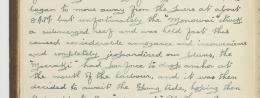 began to move away from the Quere at about
8.45 but unfortunately the "Monowai" struck
a submerged reef and was held fast this
caused considerable annoyance and inconvenience
and completely jeopardised our plans, the
"Moeraki" had perforce to drop anchor at
the mouth of the harbour, and it was then
decided to await the flowing tide, hoping then